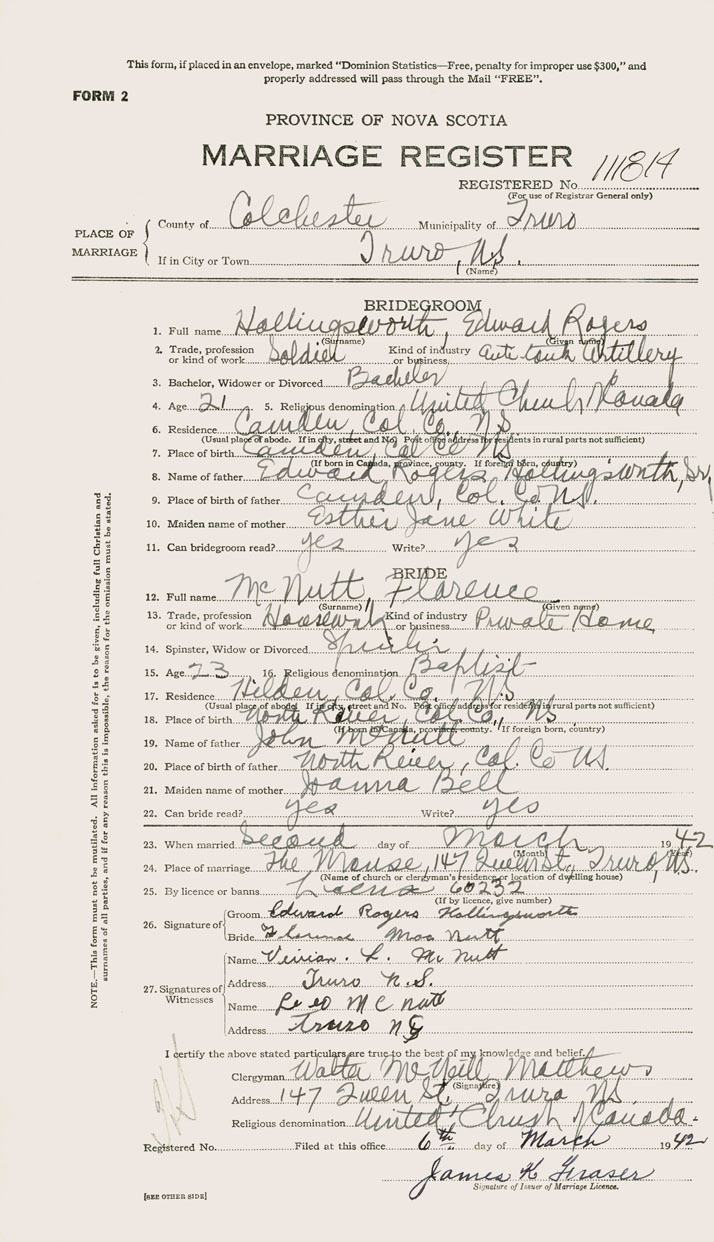 This form, if placed in an envelope, marked "Dominion Statistics—Free, penalty for improper use $300," and
properly addressed will pass through the Mail "FREE".
FORM 2
PROVINCE OF NOVA SCOTIA
MARRIAGE REGISTER
111814
REGISTERED No.
(For use of Registrar General only)
PLACE OF MARRIAGE
County of Colchester Municipality of Truro
If in City or Town Truro, N.S.
(Name)
BRIDEGROOM
1. Full name Hollingsworth, Edward Rogers
(Surname) (Given name)
2. Trade, profession or kind of work Soldier Kind of industry or business, anti tank Artillery
3. Bachelor, Widower or Divorced Bachelor
4. Age 21 5. Religious denomination United Church of Canada
6. Residence Camden, Col. Co. N.S.
(Usual place of abode. If in city, street and No. Post office address for residents in rural parts not sufficient)
7. Place of birth Camden, Col. Co. N.S.
(If born in Canada, province, county. If foreign born, country)
8. Name of father Edward Rogers Hollingsworth, Sr.
9. Place of birth of father Camden, Col. Co. N.S.
10. Maiden name of mother Esther Jane White
11. Can bridegroom read? yes Write? yes
BRIDE
12. Full name McNutt, Florence
(Surname) (Given name)
13. Trade, profession or kind of work Housework Kind of industry or business Private Home
14. Spinster, Widow or Divorced Spinster
15. Age 23 16. Religious denomination Baptist
17. Residence Hilden, Col. Co. N.S
(Usual place of abode. If in city, street and No. Post office address for residents in rural parts not sufficient)
18. Place of birth North River, Col. Co., NS
(If born in Canada, province, county. If foreign born, country)
19. Name of father John McNutt
20. Place of birth of father North River, Col. Co N.S.
21. Maiden name of mother Joanna Bell
22. Can bride read? yes Write? yes
23. When married Second day of March 1942
(Month) (Year)
24. Place of marriage The Manse, 147 Queen St., Truro, N.S.
(Name of church or clergyman's residence or location of dwelling house)
25. By licence or banns License 60232
(If by licence, give number)
26. Signature of
Groom Edward Rogers Hollingsworth
Bride Florence MacNutt
27. Signatures of Witnesses
Name Vivian. L. McNutt
Address Truro N.S.
Name Leo McNutt
Address Truro NS
I certify the above stated particulars are true to the best of my knowledge and belief.
Clergyman Walter McNeill Matthews
(Signature)
Address 147 Queen St, Truro NS.
Religious denomination United Church of Canada.
Registered No. Filed at this office 6th day of March 1942
James K Fraser
Signature of Issuer of Marriage Licence.
[SEE OTHER SIDE]
NOTE.—This form must not be mutilated. All information asked for is to be given, including full Christian and
surnames of all parties, and if for any reason this is impossible, the reason for the omission must be stated.